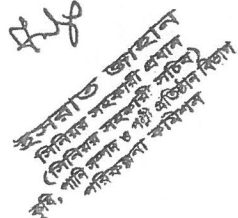 ইসমাত জাহান
সিনিয়র সহকারী প্রধান
(সিনিয়র সহকারী সচিব)
কৃষি, পানি সম্পদ ও পল্লী প্রতিষ্ঠান বিভাগ
পরিকল্পনা কমিশন